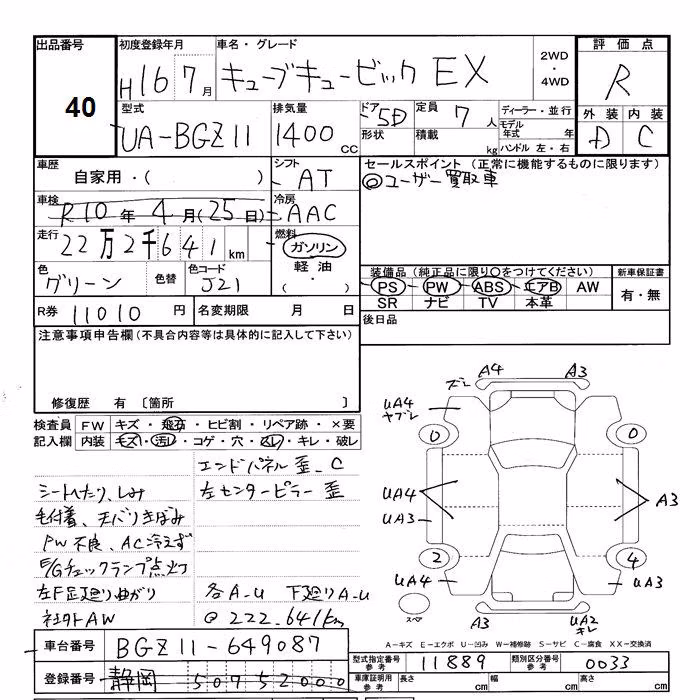 出品番号 初度登録年月 車名・グレード 2WD・4WD 評価点
40 H16 7月 キューブキュービック EX R
型式 排気量 ドア 5D 定員 7人 ディーラー・並行 外装 内装
UA-BGZ11 1400cc 形状 積載 kg モデル年式 年 D C
ハンドル 左・右
車歴 シフト セールスポイント (正常に機能するものに限ります)
自家用・( ) AT ◎ユーザー買取車
車検 R10年4月(25日) 冷房 AAC
走行 22万2千641km 燃料 ガソリン
軽油
( ・ )
色 グリーン 色替 色コード J21 装備品 (純正品に限り○をつけてください) 新車保証書
PS PW ABS エアB AW 有・無
SR ナビ TV 本革
R券 11010円 名変期限 月 日 後日品
注意事項申告欄(不具合内容等は具体的に記入して下さい)
修復歴 有 〔箇所 〕
検査員 FW キズ・飛石・ヒビ割・リペア跡・×要
記入欄 内装 キズ・汚レ・コゲ・穴・スレ・キレ・破レ
エンドパネル歪_C
シートへたり、しみ 左センターピラー歪
毛付着、天バリきばみ
PW不良、AC冷えず
E/Gチェックランプ点灯
左F足廻り曲がり 各A-U 下廻りA-U
社外AW @ 222.641km
A4 A3
ズレ
UA4
ヤブレ
0 0
UA4
UA3 A3
2 4
UA4 UA3
スペア A3 UA2
キレ
A-キズ E-エクボ U-凹み W-補修跡 S-サビ C-腐食 XX-交換済
車台番号 BGZ11-649087
型式指定番号 参考 11889 類別区分番号 参考 0033
登録番号 静岡 507 5 2000
車庫証明用 参考 長さ cm 幅 cm 高さ cm